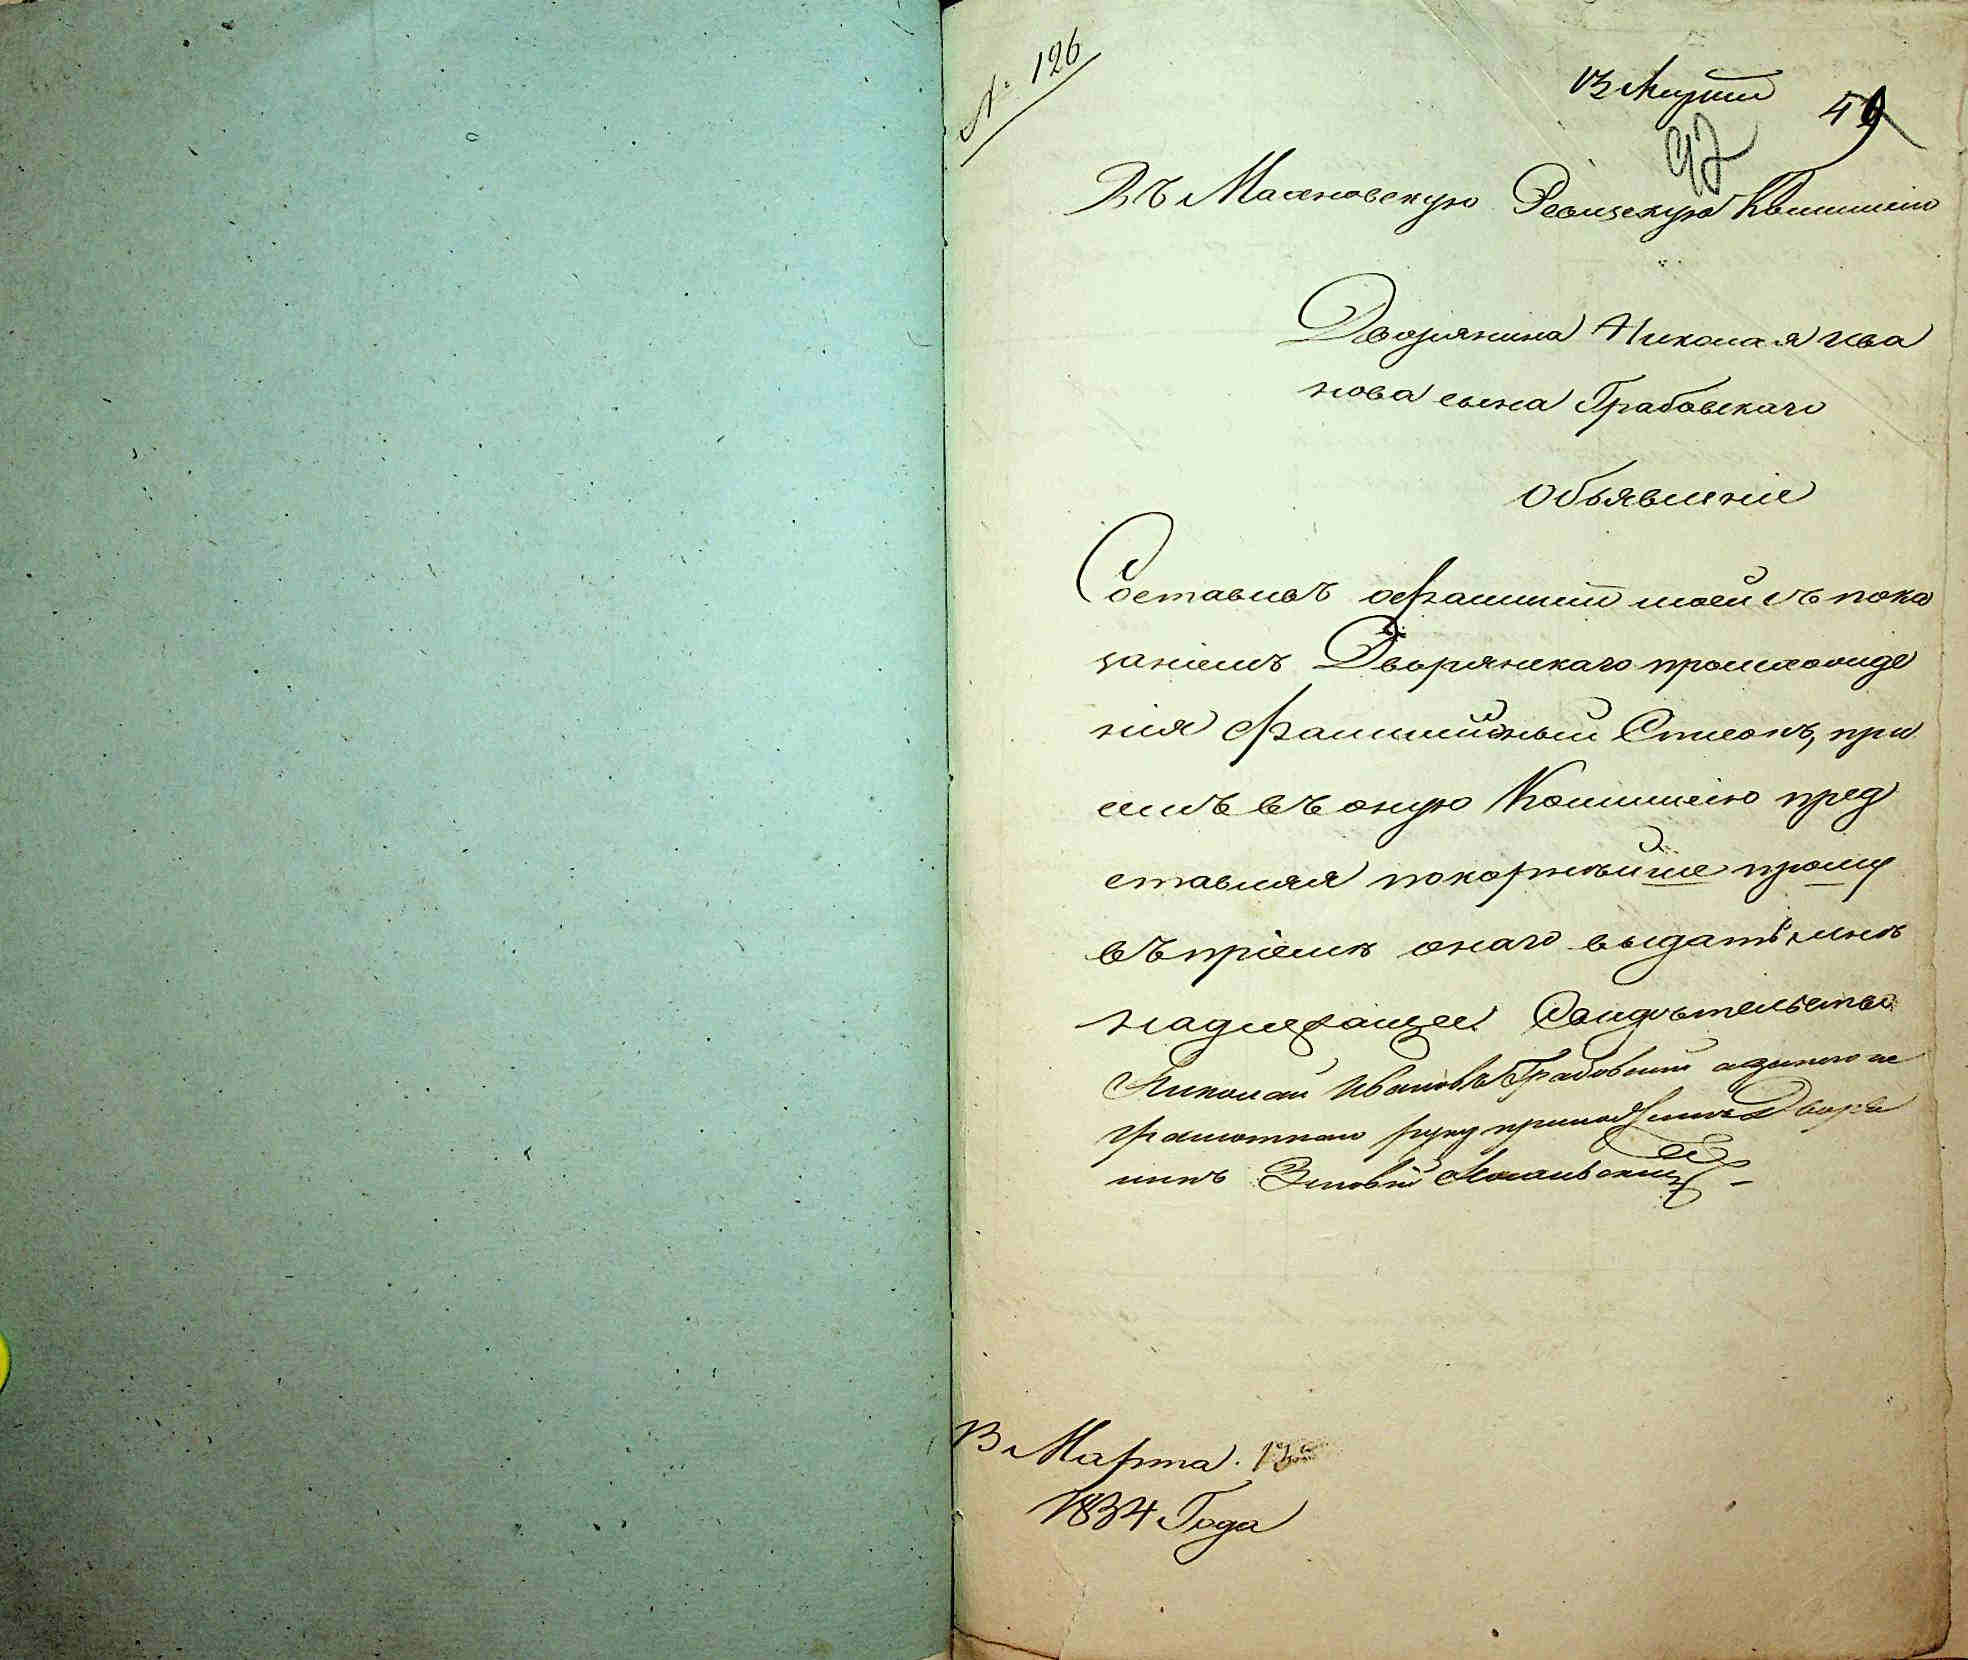 № 126
49
92
Въ Махновскую Ревизскую Коммисію
Дворянина Николая Ива
нова сына Грабовскаго
Объявленіе
Составивъ о фамиліи моей съ пока
заніемъ Дворянскаго происхожде
нія Фамилійный Списокъ, при
семъ въ оную Коммисію пред
ставляя покорнѣйше прошу
въ пріемѣ онаго выдать мнѣ
надлежащее Свидѣтельство
Николай Ивановъ Грабовский а
руку приложилъ Дворя
нинъ
Марта
1834 Года